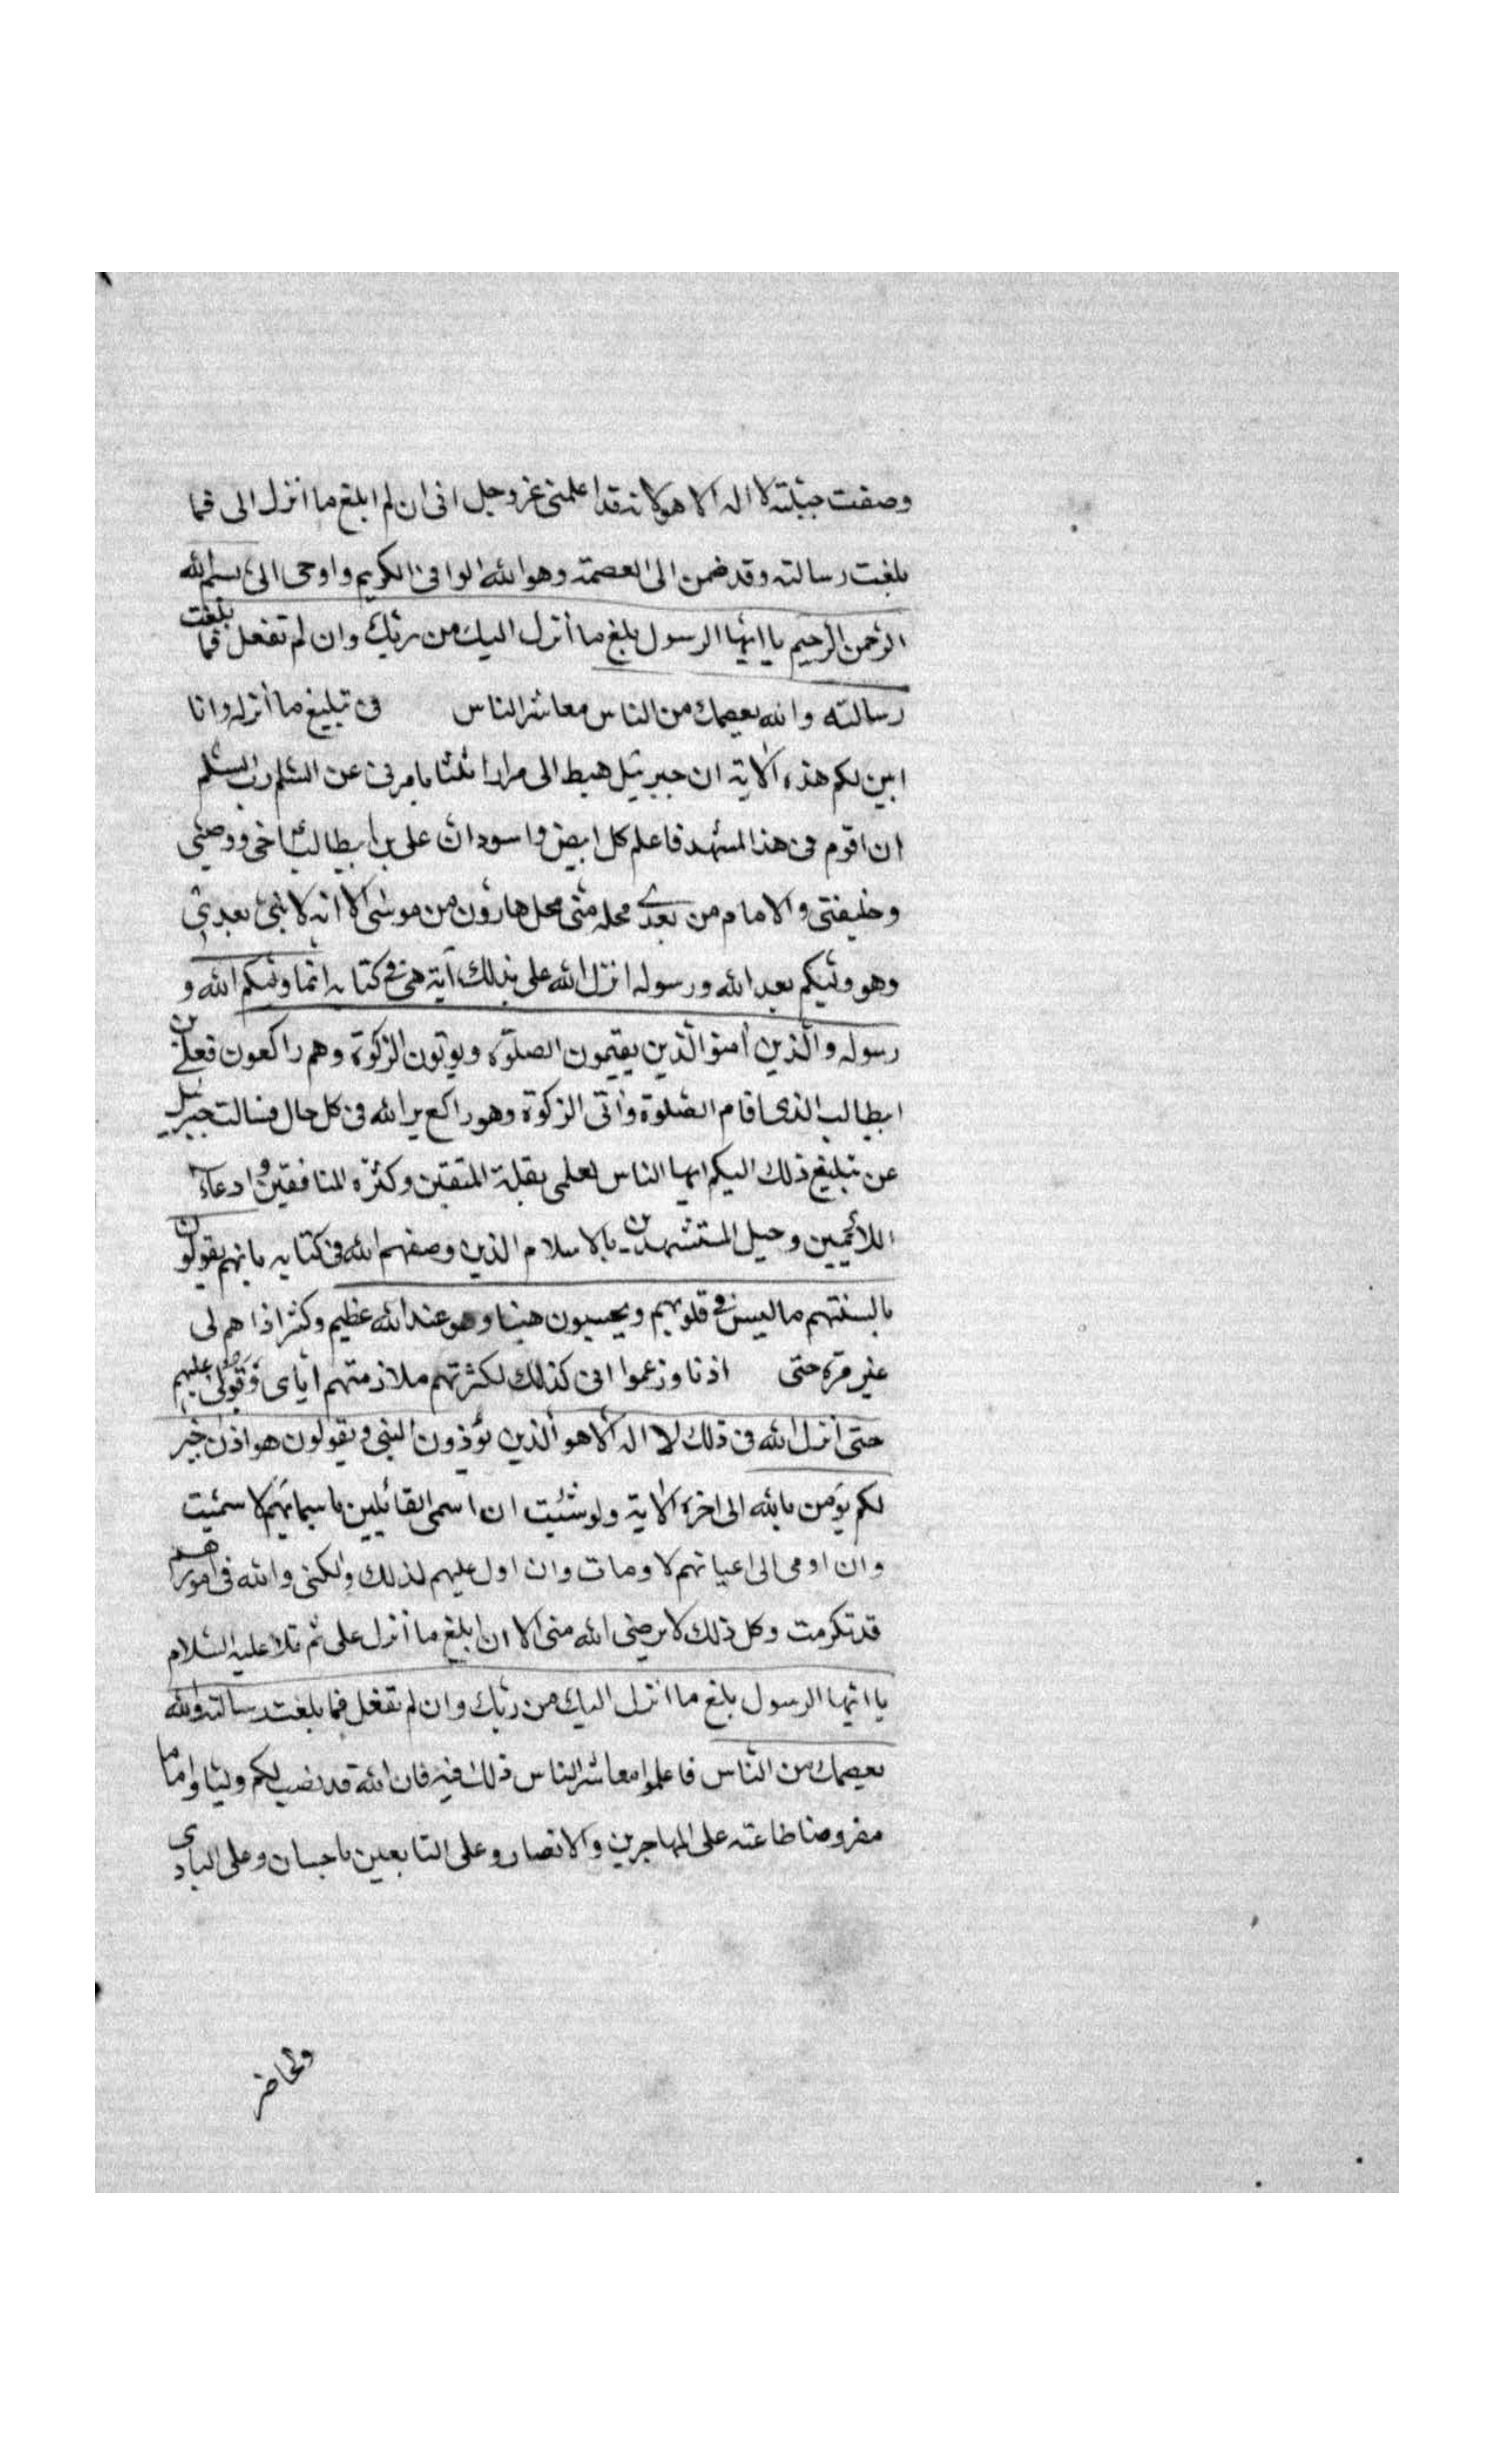 وصفت حيلته لا اله الا هو لانه قد اعلمنى عز وجل انى ان لم ابلغ ما انزل الى فما
بلغت رسالته وقد ضمن الى العصمة وهو الله الوافى الكريم واوحى الىّ بسم الله
الرّحمن الرّحيم يا ايّها الرسول بلغ ما أنزل اليك من ربّك وان لم تفعل فما بلغت
رسالته والله يعصمك من الناس معاشر الناس فى تبليغ ما أنزله وانا
ابين لكم هذه الاية ان جبرئيل هبط الى مرارا ثلثا يامرنى عن السّلم رب السّلم
ان اقوم فى هذا المشهد فاعلم كل ابيض واسود ان على بن ابيطالب اخى ووصيّى
وخليفتى والامام من بعدى محله منّى محل هارون من موسى الا انه لا نبىّ بعدى
وهو وليّكم بعد الله ورسوله انزل الله على بذلك آية هى فى كتابه انّما وليّكم الله و
رسوله والّذين امنوا الّذين يقيمون الصلوة ويوتون الزكوة وهم راكعون فعلى بن
ابيطالب الذى اقام الصّلوة واتى الزكوة وهو راكع يريد الله فى كل حال فسالت جبرئيل
عن تبليغ ذلك اليكم ايها الناس لعلمى بقلة المتقين وكثرة المنافقين و ادعاء
اللائميين وحيل المستشهدين بالاسلام الذين وصفهم الله فى كتابه بانهم يقولون
بالسنتهم ما ليس فى قلوبهم ويحسبون هينا وهو عند الله عظيم وكثر اذاهم لى
غير مرة حتى اذنا وزعموا انى كذلك لكثرتهم ملازمتهم اياى وقبولى عليهم
حتى أنزل الله فى ذلك لا اله الا هو الذين يؤذون النبى ويقولون هو اذن خير
لكم يؤمن بالله الى اخرة الاية ولو شئت ان اسمى القائيلين باسمائهم لاسمّيت
وان اومى الى اعيانهم لاومات وان اول عليهم لذلك ولكنى والله فى امورهم
قد تكرمت وكل ذلك لا يرضى الله منى الا ان ابلغ ما أنزل على ثم تلا عليه السّلام
يا ايّها الرسول بلغ ما انزل اليك من ربّك وان لم تفعل فما بلغت رسالته والله
يعصمك من النّاس فاعلموا معاشر الناس ذلك فيه فان الله قد نصب لكم وليّا واماما
مفروضا طاعته على المهاجرين والانصار وعلى التابعين باحسان وعلى البادى
والحاضر